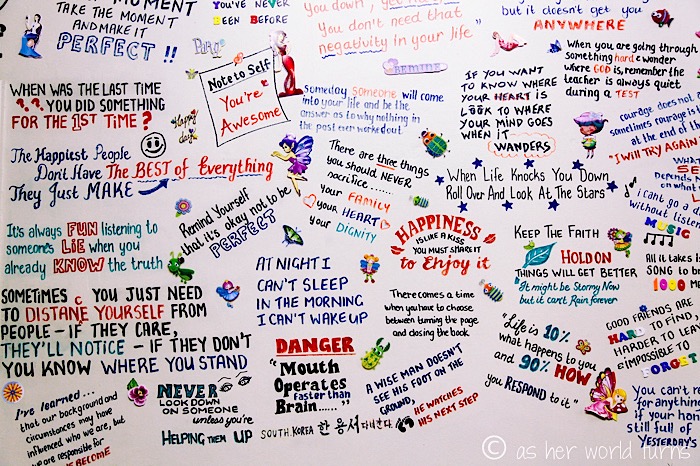 TAKE THE MOMENT
AND MAKE IT
PERFECT !!
YOU'VE NEVER
BEEN BEFORE
you down, yet
You don't need that
negativity in your life"
but it doesn't get you
ANYWHERE
When you are going through
something hard & wonder
where GOD is, remember the
teacher is always quiet
during a TEST
Note to Self
You're
Awesome
REMIND
WHEN WAS THE LAST TIME
YOU DID SOMETHING
FOR THE 1ST TIME?
Happy
day
someday, someone will come
into your life and be the
answer as to why nothing in
the past ever worked out
IF YOU WANT
TO KNOW WHERE
YOUR HEART IS
LOOK TO WHERE
YOUR MIND GOES
WHEN IT
WANDERS
courage does not
sometimes courage is
at the end of
"I WILL TRY AGAIN
The Happiest People
Don't Have The BEST of Everything
They Just MAKE
There are three things
you should NEVER
sacrifice......
your FAMILY
your HEART
your DIGNITY
When Life Knocks You Down
Roll Over And Look At The Stars
I can't go a
without listen
MUSIC
It's always FUN listening to
someone's LIE when you
already KNOW the truth
Remind Yourself
that it's okay not to be
PERFECT
HAPPINESS
IS LIKE A KISS
YOU MUST SHARE IT
to Enjoy it
KEEP THE FAITH
HOLD ON
THINGS WILL GET BETTER
"It might be Stormy Now
but it can't Rain forever
All it takes is
SONG to b
1000 ME
SOMETIMES YOU JUST NEED
TO DISTANE YOURSELF FROM
PEOPLE - IF THEY CARE,
THEY'LL NOTICE - IF THEY DON'T
YOU KNOW WHERE YOU STAND
AT NIGHT I
CAN'T SLEEP
IN THE MORNING
I CAN'T WAKE UP
There comes a time
when you have to choose
between turning the page
and closing the book
"Life is 10%
what happens to you
and 90% HOW
you RESPOND to it"
GOOD FRIENDS ARE
HARD TO FIND,
HARDER TO LE
IMPOSSIBLE TO
FORGET
DANGER
"Mouth
Operates
faster than
Brain......"
A WISE MAN DOESN'T
SEE HIS FOOT ON THE
GROUND,
HE WATCHES
HIS NEXT STEP
I've learned...
that our background and
circumstances may have
influenced who we are, but
we are responsible for
BECOME
NEVER
LOOK DOWN
ON SOMEONE
unless you're
HELPING THEM UP
SOUTH.KOREA 한 용서
You can't
for anything
if your ho
still full of
YESTERDAY'S
© as her world turns